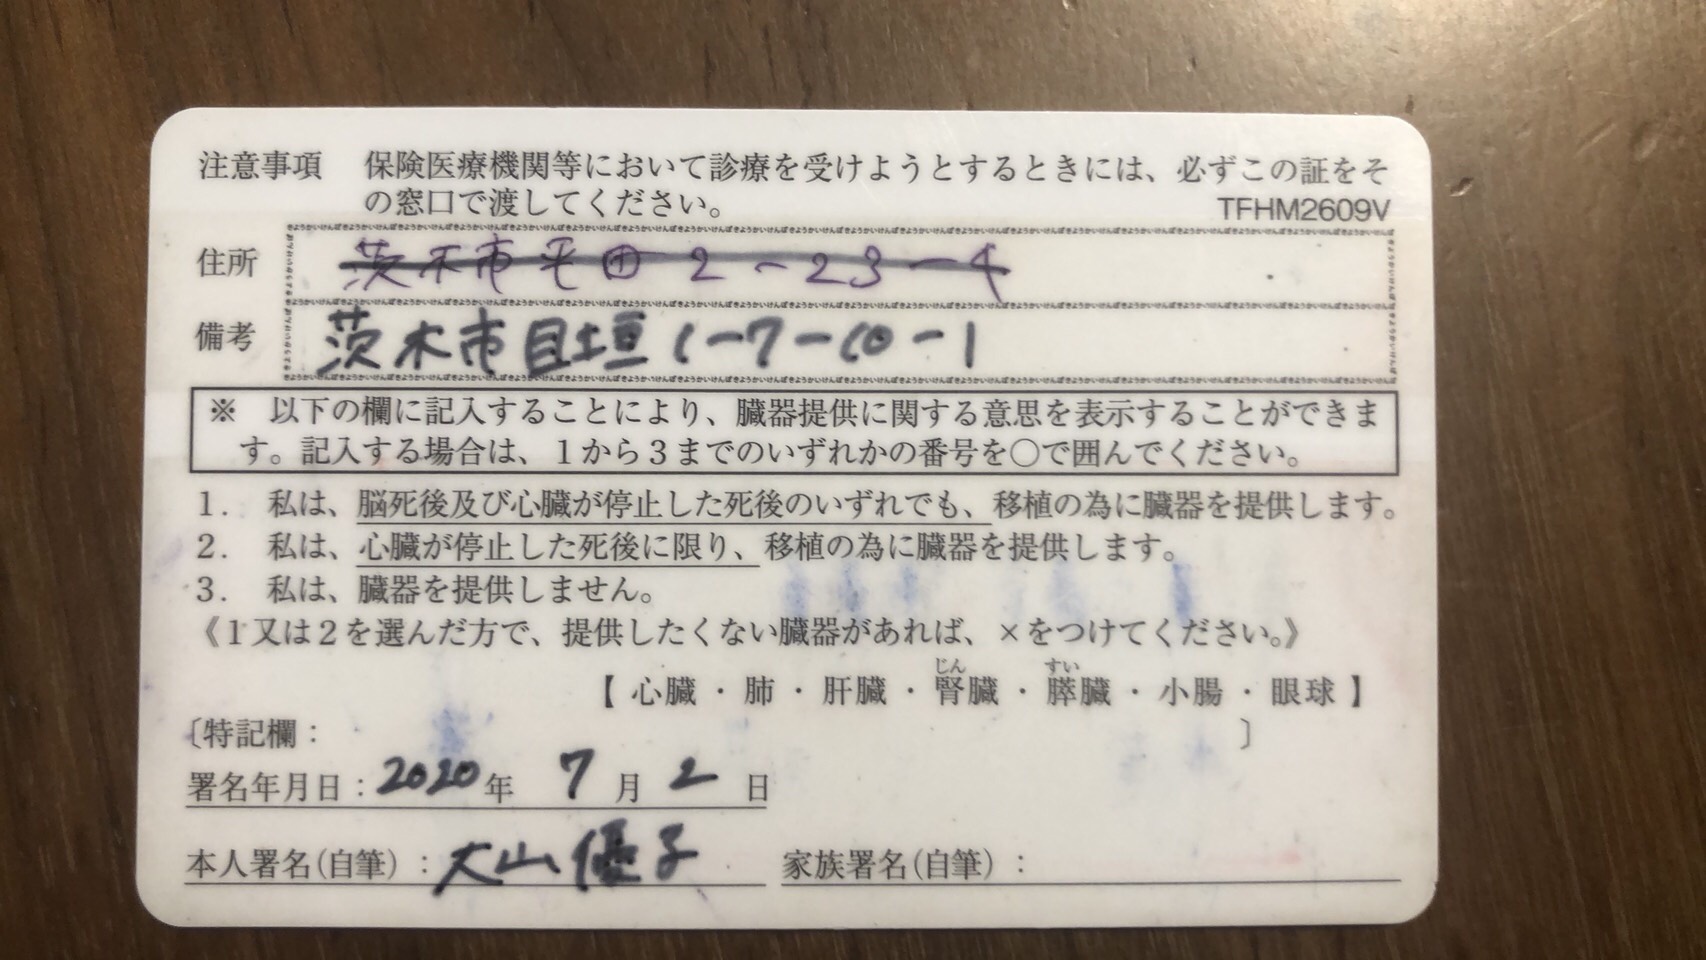 注意事項 保険医療機関等において診療を受けようとするときには、必ずこの証をそ
の窓口で渡してください。
TFHM2609V
住所 茨木市平田2-23-4
備考 茨木市目垣1-7-10-1
※ 以下の欄に記入することにより、臓器提供に関する意思を表示することができま
す。記入する場合は、1から3までのいずれかの番号を○で囲んでください。
1. 私は、脳死後及び心臓が停止した死後のいずれでも、移植の為に臓器を提供します。
2. 私は、心臓が停止した死後に限り、移植の為に臓器を提供します。
3. 私は、臓器を提供しません。
《1又は2を選んだ方で、提供したくない臓器があれば、×をつけてください。》
じん すい
【 心臓 ・ 肺 ・ 肝臓 ・ 腎臓 ・ 膵臓 ・ 小腸 ・ 眼球 】
〔特記欄: 〕
署名年月日:2020年 7月 2日
本人署名(自筆):大山優子 家族署名(自筆):